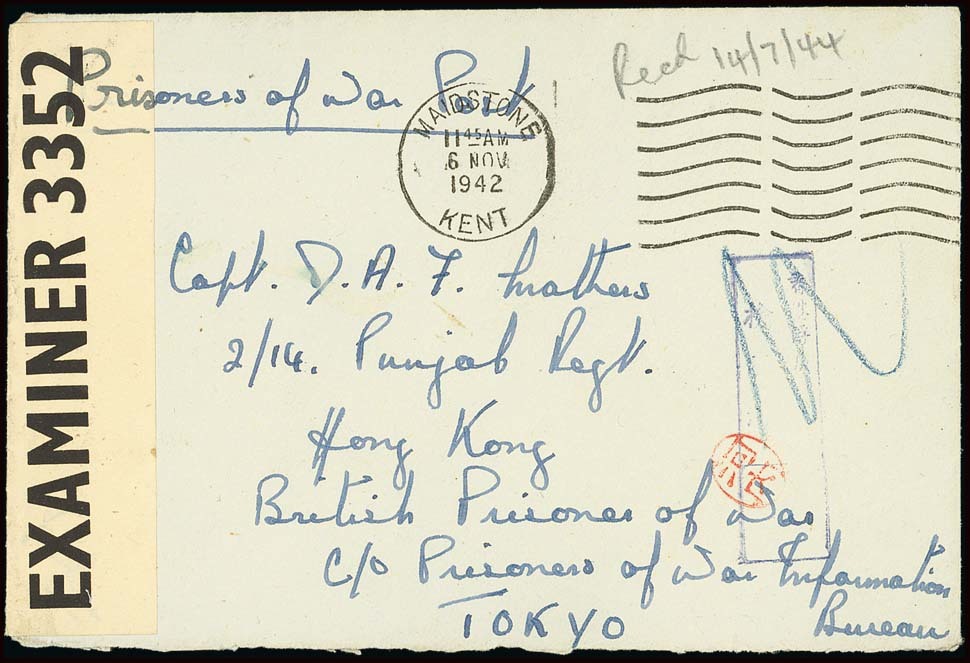 EXAMINER 3352
Prisoners of War Post
Recd 14/7/44
MAIDSTONE
11 45 AM
6 NOV
1942
KENT
Capt. D. A. F. Mathers
2/14. Punjab Regt.
Hong Kong
British Prisoner of War
c/o Prisoners of War Information
Bureau
TOKYO